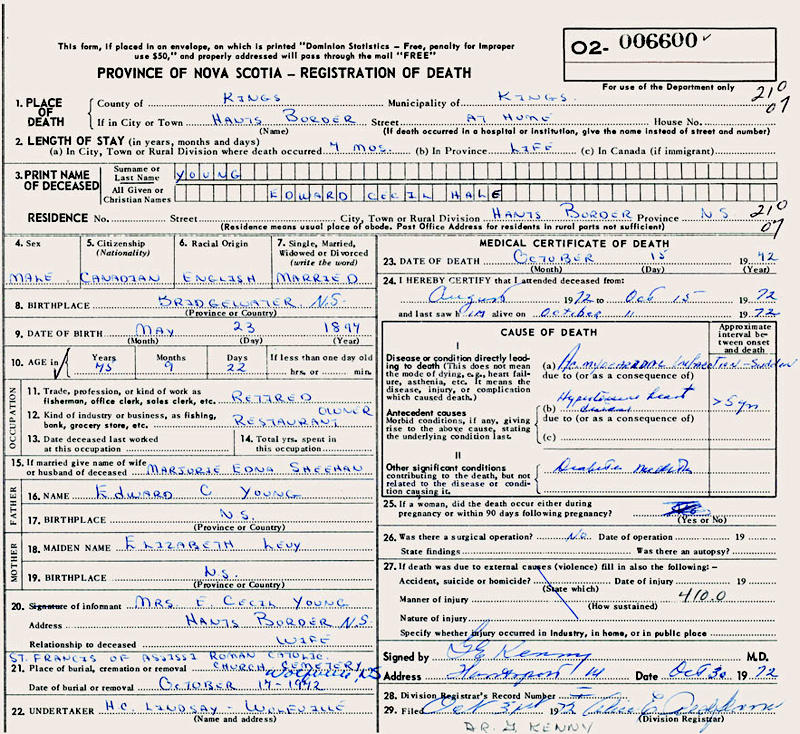 This form, if placed in an envelope, on which is printed "Dominion Statistics – Free, penalty for improper
use $50," and properly addressed will pass through the mail "FREE"
O2- 006600
PROVINCE OF NOVA SCOTIA – REGISTRATION OF DEATH
For use of the Department only
210
07
1. PLACE OF DEATH
County of KINGS Municipality of KINGS.
If in City or Town HANTS BORDER Street AT HOME House No.
(Name) (If death occurred in a hospital or institution, give the name instead of street and number)
2. LENGTH OF STAY (in years, months and days)
(a) In City, Town or Rural Division where death occurred 4 MOS. (b) In Province LIFE (c) In Canada (if immigrant)
3. PRINT NAME OF DECEASED
Surname or Last Name YOUNG
All Given or Christian Names EDWARD CECIL HALE
RESIDENCE No. Street City, Town or Rural Division HANTS BORDER Province NS
210
07
(Residence means usual place of abode. Post Office Address for residents in rural parts not sufficient)
4. Sex
MALE
5. Citizenship
(Nationality)
CANADIAN
6. Racial Origin
ENGLISH
7. Single, Married, Widowed or Divorced
(write the word)
MARRIED
8. BIRTHPLACE BRIDGEWATER N.S.
(Province or Country)
9. DATE OF BIRTH MAY 23 1897
(Month) (Day) (Year)
10. AGE in Years Months Days If less than one day old
75 9 22 hrs. or min.
OCCUPATION
11. Trade, profession, or kind of work as
fisherman, office clerk, sales clerk, etc. RETIRED
12. Kind of industry or business, as fishing,
bank, grocery store, etc. RESTAURANT OWNER
13. Date deceased last worked
at this occupation
14. Total yrs. spent in
this occupation
15. If married give name of wife
or husband of deceased MARJORIE EDNA SHEEHAN
FATHER
16. NAME EDWARD C YOUNG
17. BIRTHPLACE N.S.
(Province or Country)
MOTHER
18. MAIDEN NAME ELIZABETH LEVY
19. BIRTHPLACE NS.
(Province or Country)
20. Signature of informant MRS E. CECIL YOUNG
Address HANTS BORDER N.S.
Relationship to deceased WIFE
ST. FRANCIS OF ASSISSI ROMAN CATOLIC
21. Place of burial, cremation or removal CHURCH CEMETERY
Wolfville NS
Date of burial or removal OCTOBER 17-1972
22. UNDERTAKER H.C. LINDSAY - WOLFVILLE
(Name and address)
MEDICAL CERTIFICATE OF DEATH
23. DATE OF DEATH OCTOBER 15 1972
(Month) (Day) (Year)
24. I HEREBY CERTIFY that I attended deceased from:
August 1972 to Oct 15 1972
and last saw him alive on October 11 1972
CAUSE OF DEATH
Approximate interval between onset and death
I
Disease or condition directly leading to death (This does not mean the mode of dying, e.g., heart failure, asthenia, etc. It means the disease, injury, or complication which caused death.)
(a) myocardial infarction - Sudden
due to (or as a consequence of)
Antecedent causes
Morbid conditions, if any, giving rise to the above cause, stating the underlying condition last.
(b) Hypertensive heart disease >5 yrs
due to (or as a consequence of)
(c)
II
Other significant conditions
contributing to the death, but not related to the disease or condition causing it.
Diabetes mellitus
25. If a woman, did the death occur either during
pregnancy or within 90 days following pregnancy?
(Yes or No)
26. Was there a surgical operation? No Date of operation 19
State findings Was there an autopsy?
27. If death was due to external causes (violence) fill in also the following:–
Accident, suicide or homicide? Date of injury 19
(State which)
Manner of injury 410.0
(How sustained)
Nature of injury
Specify whether injury occurred in industry, in home, or in public place
Signed by Kenny M.D.
Address Hantsport Date Oct 30 1972
28. Division Registrar's Record Number
29. Filed Oct 31st 1972
(Division Registrar)
DR. G KENNY